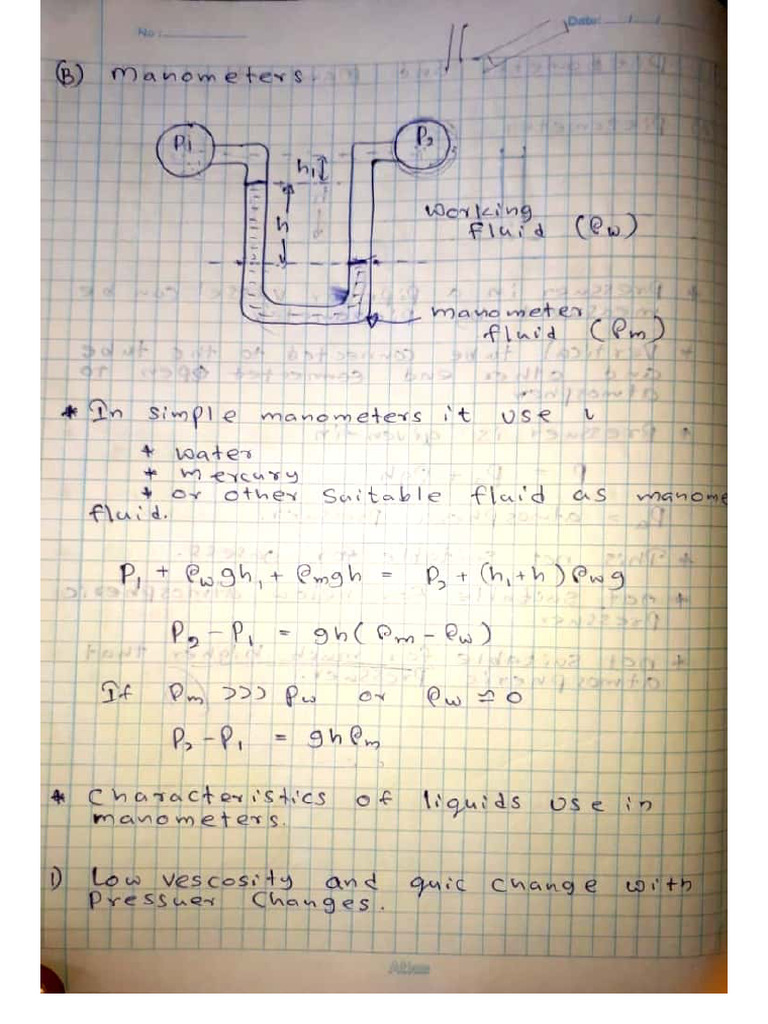 No:
Date: / /
(B) manometers
P1
P2
h1
h
working
fluid (ρw)
manometer
fluid (ρm)
* In simple manometers it use
* water
* mercury
* or other suitable fluid as manome
fluid.
P1 + ρwgh1 + ρmgh = P2 + (h1+h)ρwg
P2 - P1 = gh(ρm - ρw)
If ρm >>> ρw or ρw ≈ 0
P2 - P1 = ghρm
* Characteristics of liquids use in
manometers.
1) Low vescosity and quic change with
Pressuer Changes.
Atlas